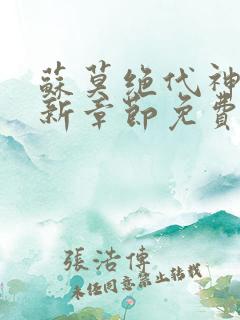 蘇莫絶代神
新章節免費
張浩傳
未经同意禁止转载